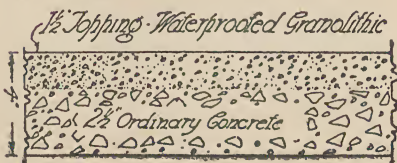 1½" Topping - Waterproofed Granolithic
4"
2½" Ordinary Concrete